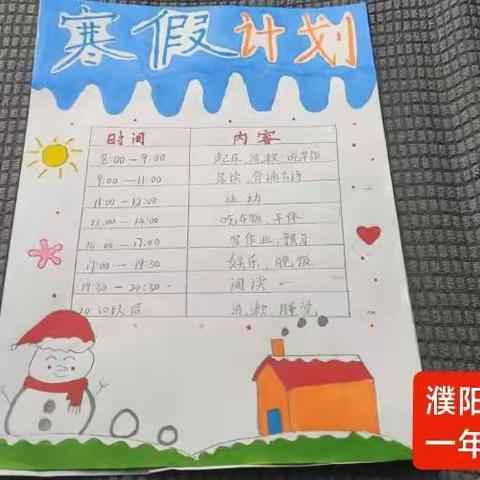 寒假计划
时间 内容
8:00-9:00 起床、洗漱、吃早饭
9:00-11:00 晨读、背诵古诗
11:00-12:00 运动
12:00-14:00 吃午饭、午休
14:00-17:00 写作业、预习
17:00-19:30 娱乐、晚饭
19:30-20:30 阅读
20:30以后 洗漱、睡觉
濮阳
一年